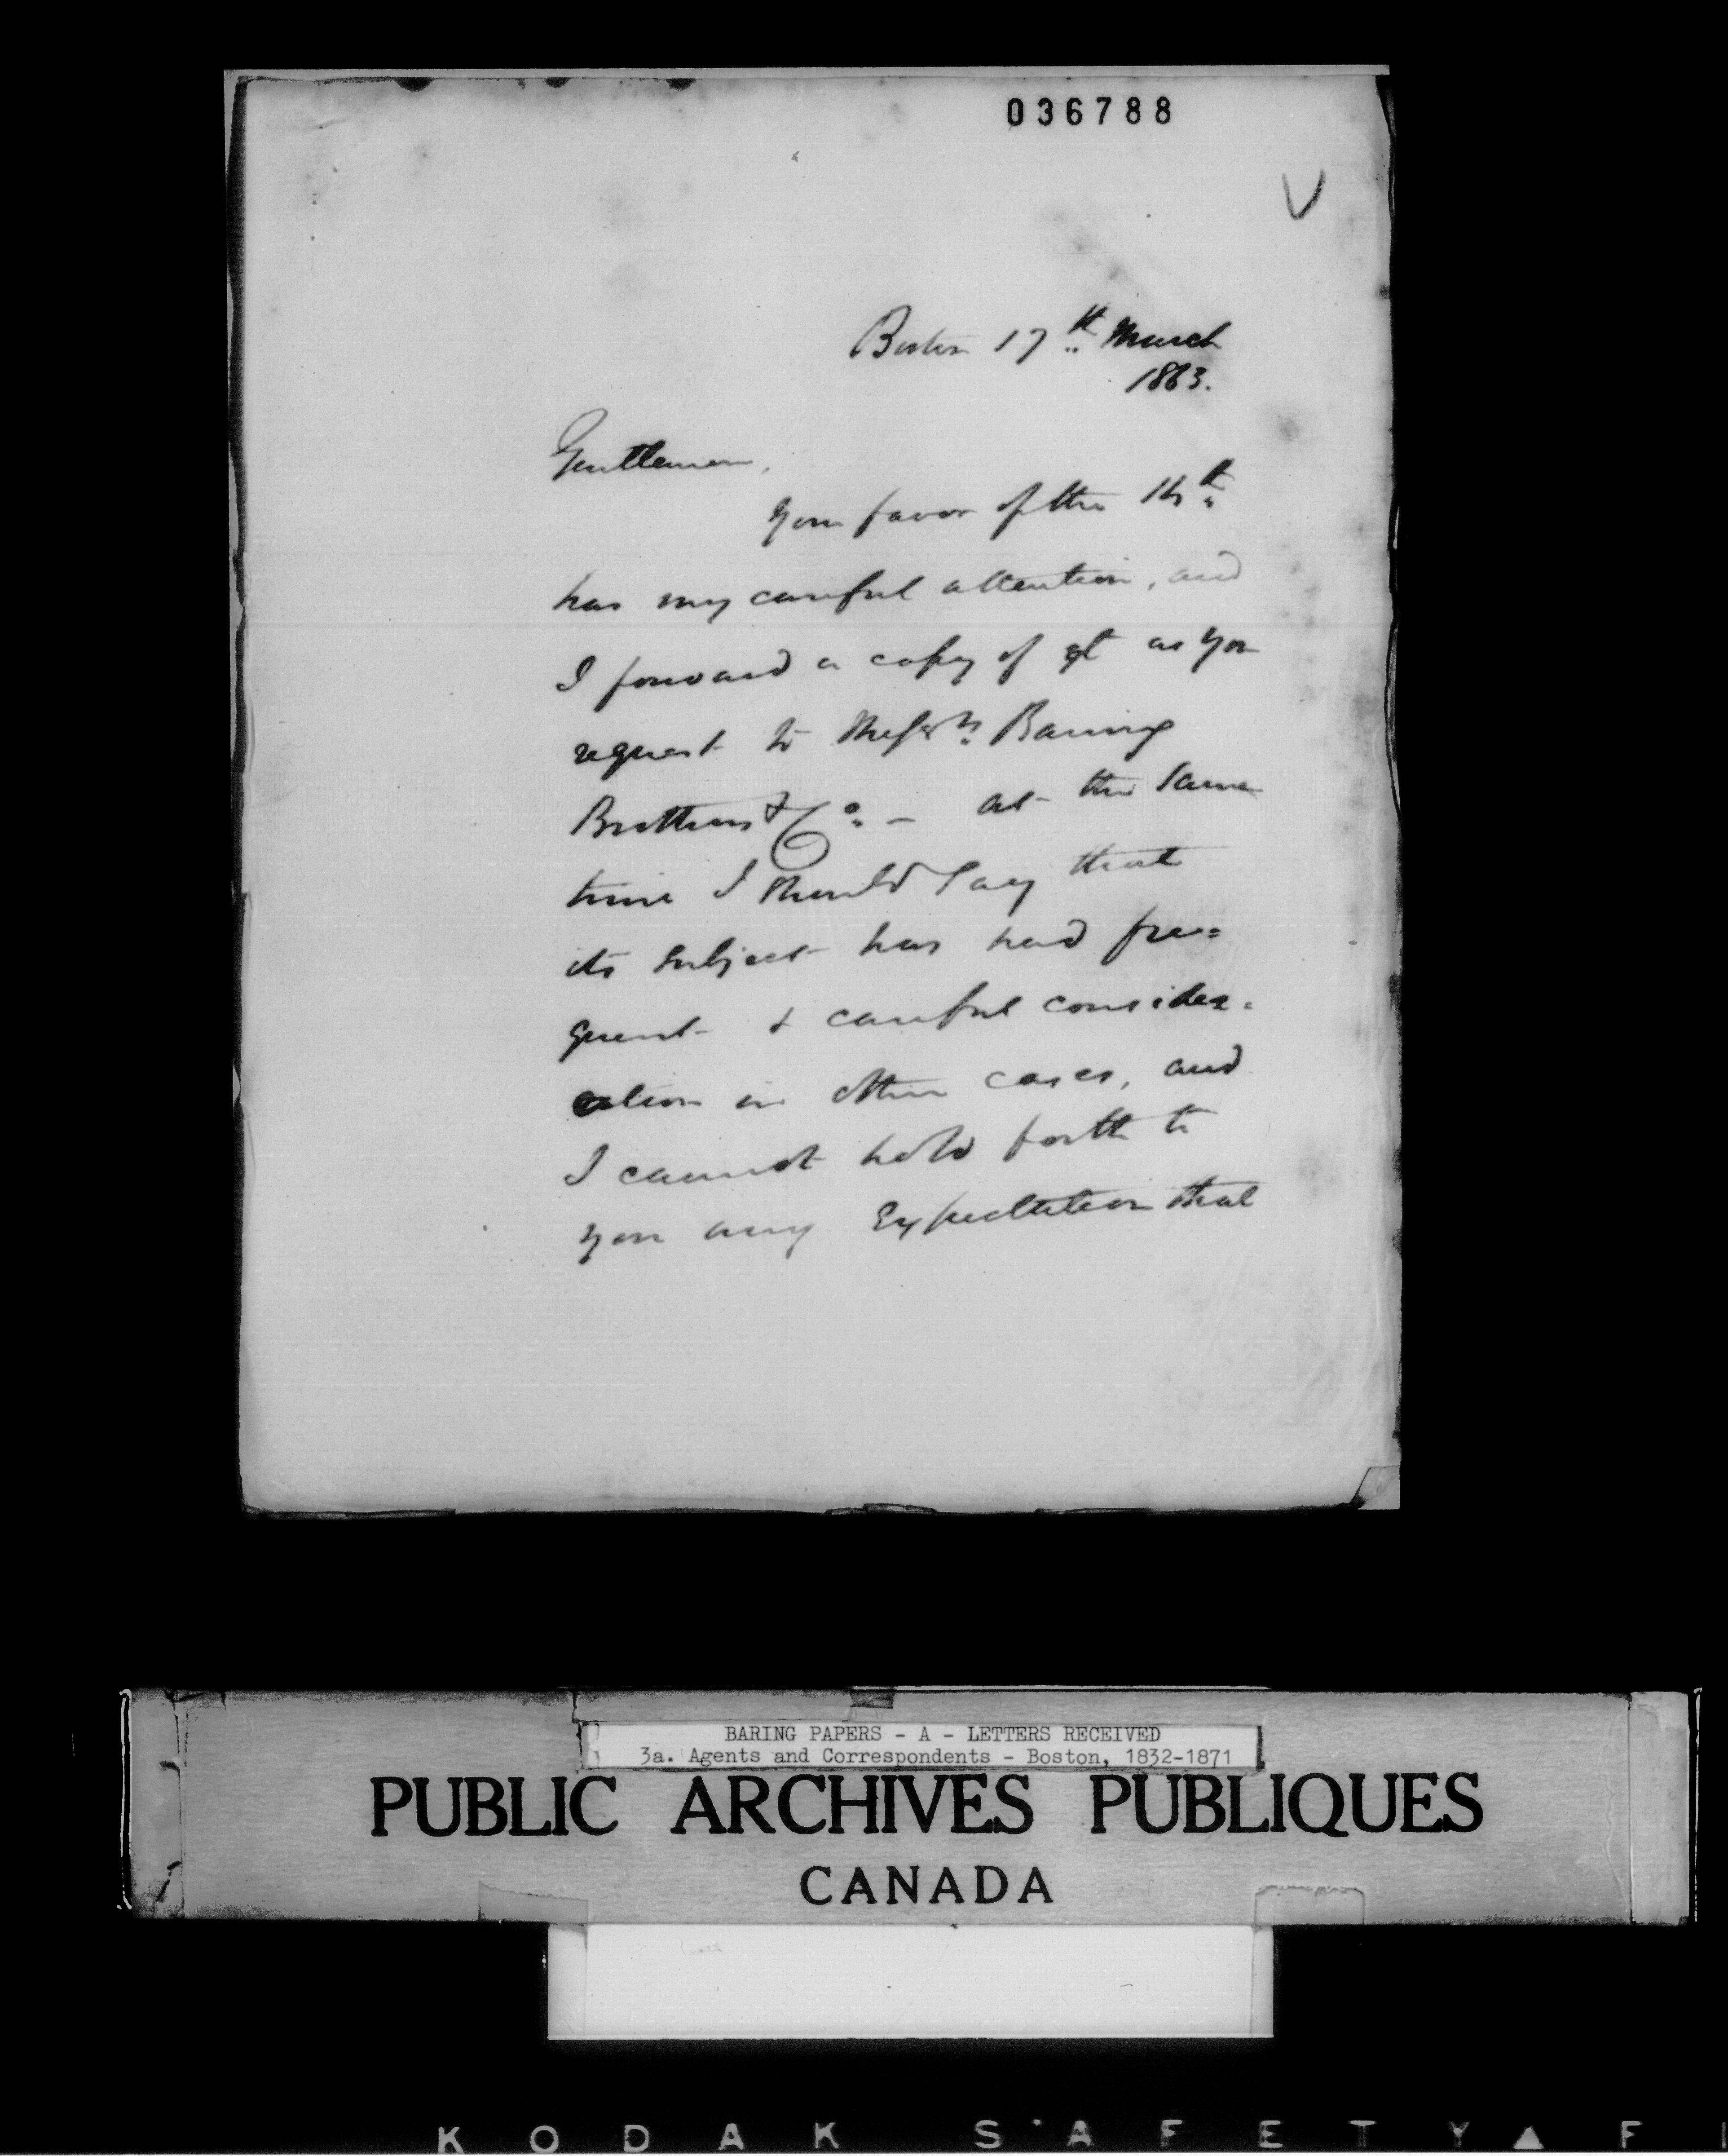 036788
V
Boston 17th March
1863.
Gentlemen,
Your favor of the 14th
has my careful attention, and
I forward a copy of it as you
request to Messrs Baring
Brothers & Co. — at the same
time I should say that
its subject has had fre=
quent & careful consider=
ation in other cases, and
I cannot hold forth to
you any Expectation that
BARING PAPERS - A - LETTERS RECEIVED
3a. Agents and Correspondents - Boston, 1832-1871
PUBLIC ARCHIVES PUBLIQUES
CANADA
KODAK SAFETY▲F